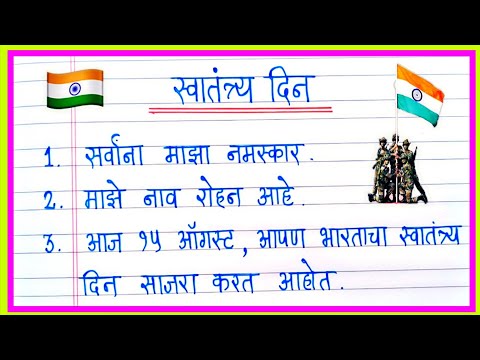 स्वातंत्र्य दिन
1. सर्वांना माझा नमस्कार.
2. माझे नाव रोहन आहे.
3. आज १५ ऑगस्ट, आपण भारताचा स्वातंत्र्य
दिन साजरा करत आहोत.